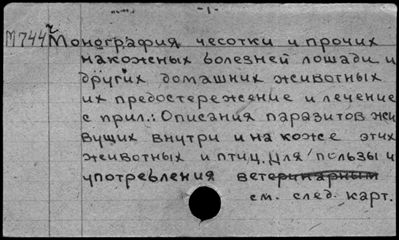 -1-
М744 Монография чесотки и прочих
накожных болезней лошади и
других домашних животных
их предостережение и лечение
с прил.: Описания паразитов жи
вущих внутри и на коже этих
животных и птиц. Для пользы и
употребления ветеринарным
см. след. карт.